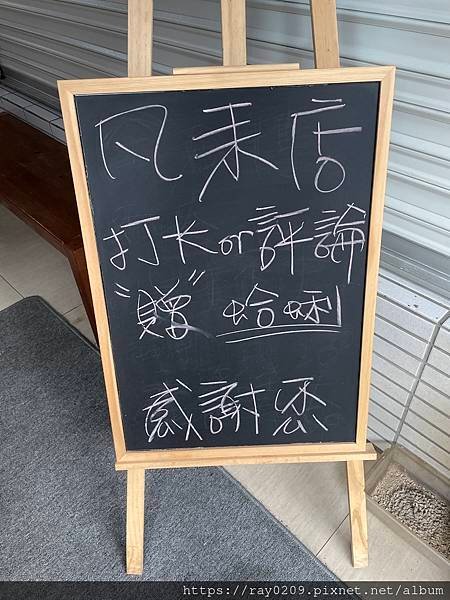 凡来店
打卡or評論
"贈" 蛤蜊
感謝您
https://ray0209.pixnet.net/album